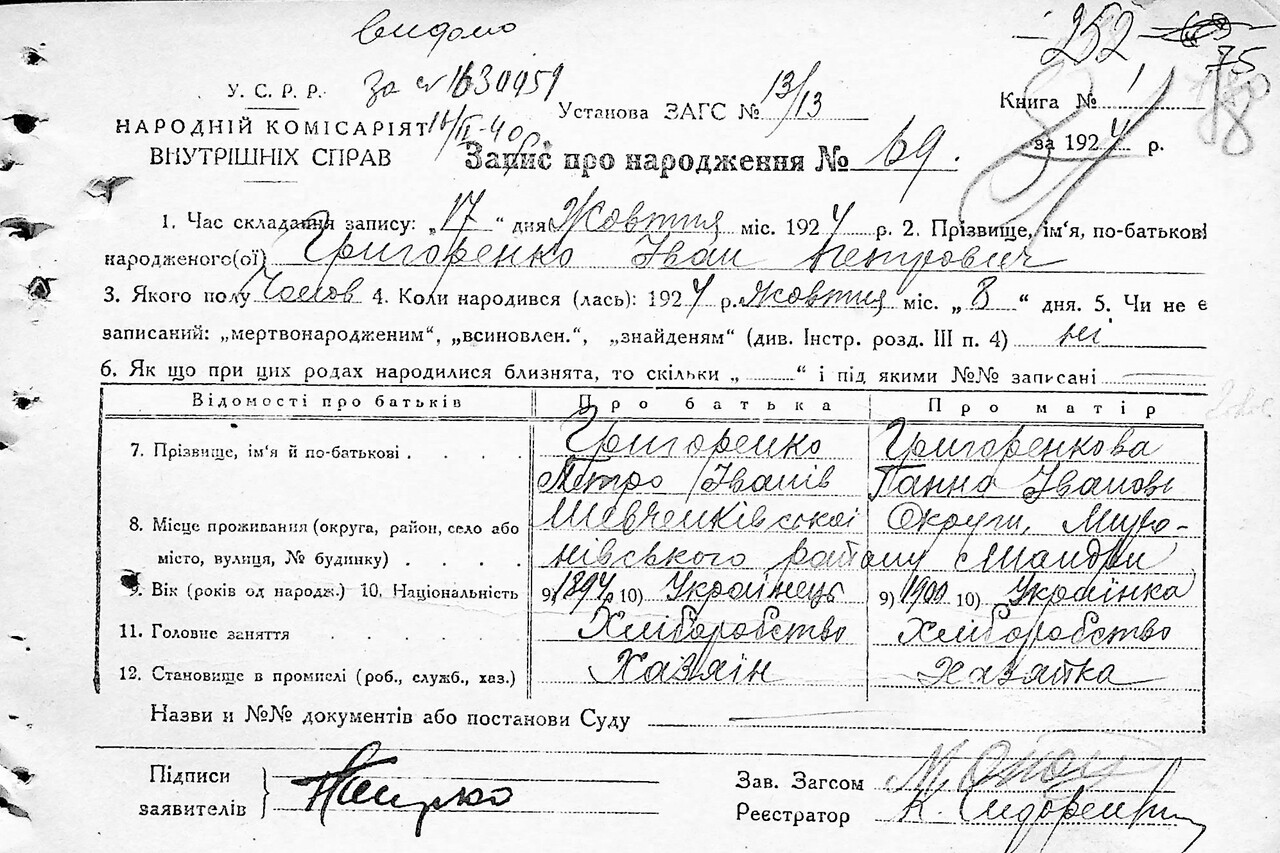 видано
за № 1630951
252
75
У. С. Р. Р.
Установа ЗАГС № 13/13
Книга № 1
НАРОДНІЙ КОМІСАРІЯТ
за 1924 р.
ВНУТРІШНІХ СПРАВ
Запис про народження № 69.
1. Час складання запису: „17“ дня Жовтня міс. 1924 р. 2. Прізвище, ім‘я, по-батькові
народженого(ої) Григоренко Іван Петрович
3. Якого полу Чолов 4. Коли народився (лась): 1924 р. Жовтня міс. „8“ дня. 5. Чи не є
записаний: „мертвонародженим“, „всиновлен.“, „знайденям“ (див. Інстр. розд. III п. 4) ні
6. Як що при цих родах народилися близнята, то скільки „ “ і під якими №№ записані
Відомості про батьків Про батька Про матір
7. Прізвище, ім‘я й по-батькові . . . . Григоренко Григоренкова
Петро Іванів Ганна Іванов
8. Місце проживання (округа, район, село або Шевченківської Округи, Миро-
місто, вулиця, № будинку) . . . . нівського району
9. Вік (років од народж.) 10. Національність 9) 1894 р. 10) Українець 9) 1900 10) Українка
11. Головне заняття . . . . Хліборобство Хліборобство
12. Становище в промислі (роб., служб., хаз.) Хазяїн Хазяйка
Назви и №№ документів або постанови Суду
Підписи
заявителів
Зав. Загсом
Реєстратор К. Сидоренко